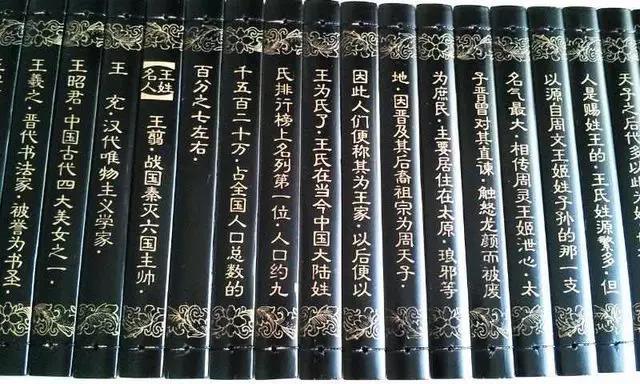 天子之后代多以
人是赐姓王的·王氏姓源繁多·但
以源自周文王姬姓子孙的那一支
名气最大·相传周灵王姬泄心·太
子晋曾对其直谏·触怒龙颜而被废
为庶民·主要居住在太原·琅邪等
地·因晋及其后裔祖宗为周天子·
因此人们便称其为王家·以后便以
王为氏了·王氏在当今中国大陆姓
氏排行榜上名列第一位·人口约九
千五百二十万·占全国人口总数的
百分之七左右·
【王姓名人】 王翦 战国秦灭六国主帅·
王 充·汉代唯物主义学家·
王昭君·中国古代四大美女之一·
王羲之·晋代书法家·被誉为书圣